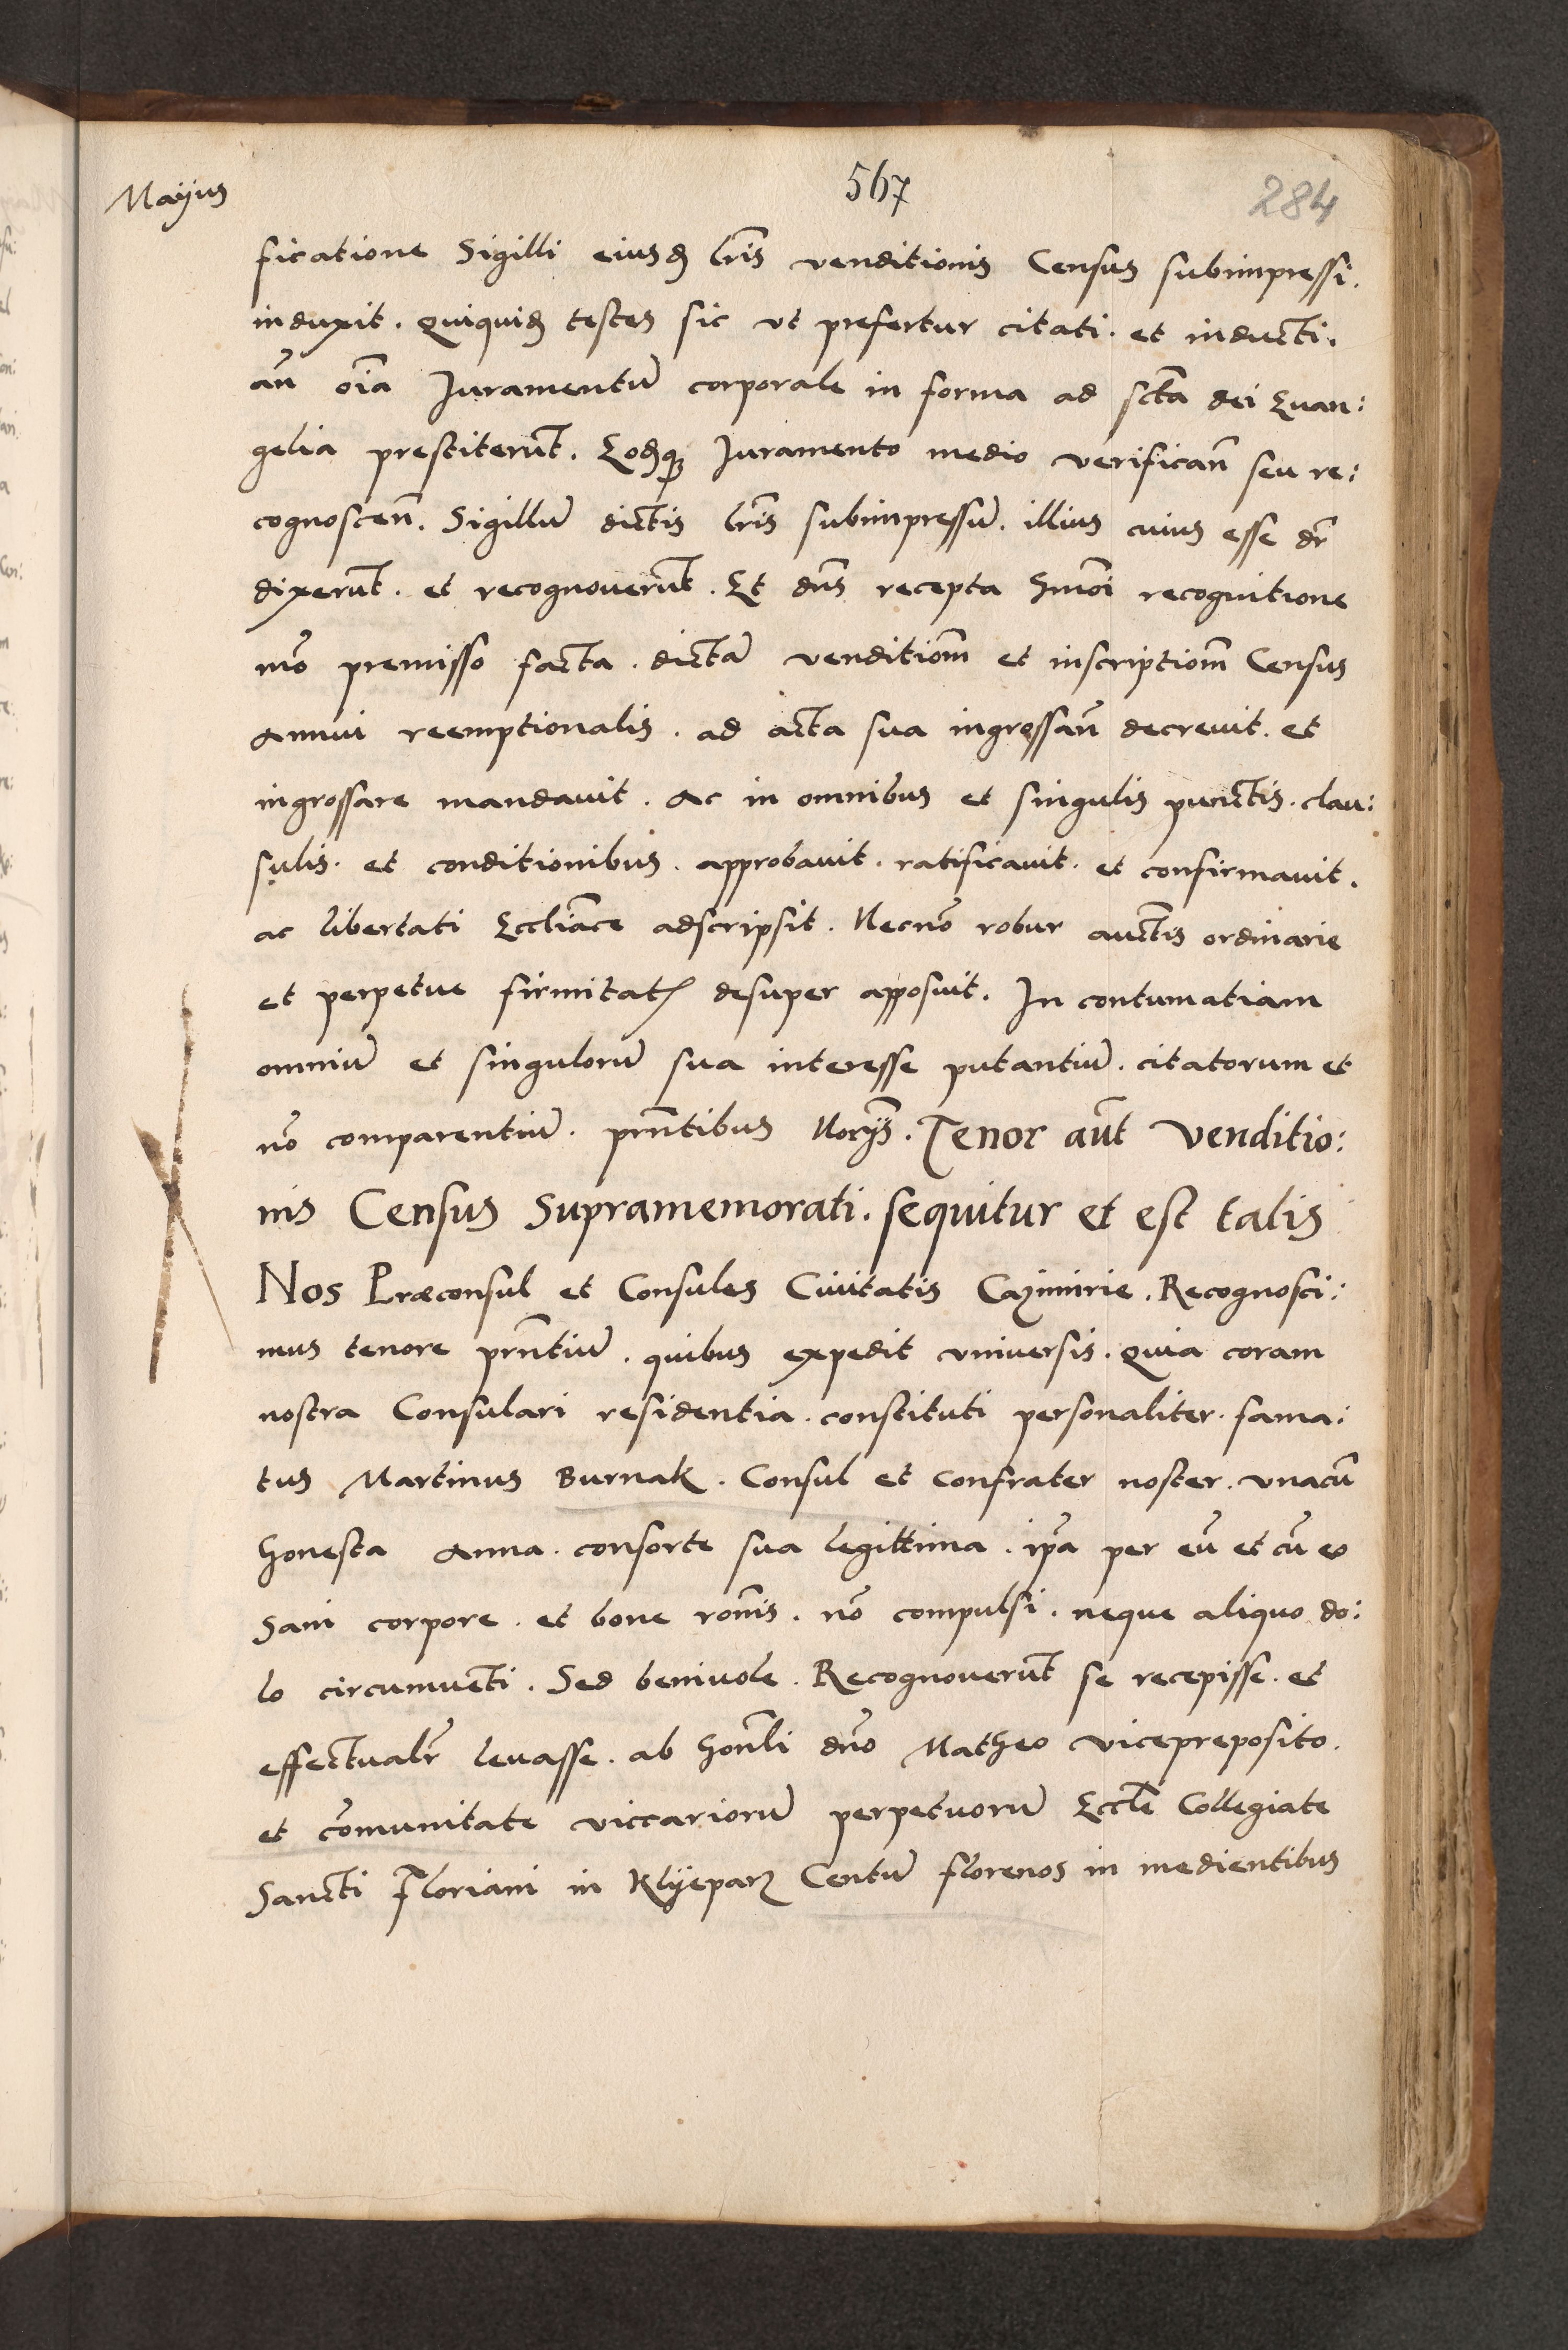 Mayus
567
284
ficatione Sigilli eiusdꝫ lr̃is venditionis Census subimpressi.
induxit. Quiquidꝫ testes sic ut prefertur citati. et inducti.
añ oı̃a Juramentũ corporale in forma ad sc̃ta dei Euan:
gelia prestiterũt. Eodꝫqꝫ Juramento medio verificañ seu re:
cognosceñ. Sigillũ dictis lr̃is subimpressũ. illius cuius esse dr̃
dixerũt. et recognouerũt. Et dñs recepta hm̃oi recognitione
mõ premisso facta. dictã venditiom̃ et inscriptiom̃ Census
Annui reemptionalis. ad acta sua ingrossañ decrevit. et
ingrossare mandauit. Ac in omnibus et singulis punctis. clau:
sulis. et conditionibus. approbauit. ratificauit. et confirmauit.
ac libertati Eccliãce adscripsit. Necnõ robur auctis ordinarie
et perpetue firmitatꝭ desuper apposuit. In contumatiam
omniũ et singulorũ sua interesse putantiũ. citatorum et
nõ comparentiũ. prñtibus Norÿs̃. Tenor aũt Venditio:
nis Census supramemorati. sequitur et est talis
Nos Præconsul et Consules Ciuitatis Cazimirie. Recognosci:
mus tenore prñtiũ. quibus expedit vniversis. Quia coram
nostra Consulari residentia. constituti personaliter. fama:
tus Martinus Burnak. Consul et Confrater noster. vnacũ
honesta Anna. consorte sua legittima. ip̃a per eũ et cũ eo
Sani corpore. et bone ror̃nis. nõ compulsi. neque aliquo do:
lo circumuẽti. Sed beniuole. Recognouerũt se recepisse. et
effectualr̃ leuasse. ab hoñli dño Matheo vicepreposito.
et cõmunitate viccariorũ perpetuorũ Eccl̃e Collegiate
Sancti Floriani in Klyeparz Centũ florenos in medientibus